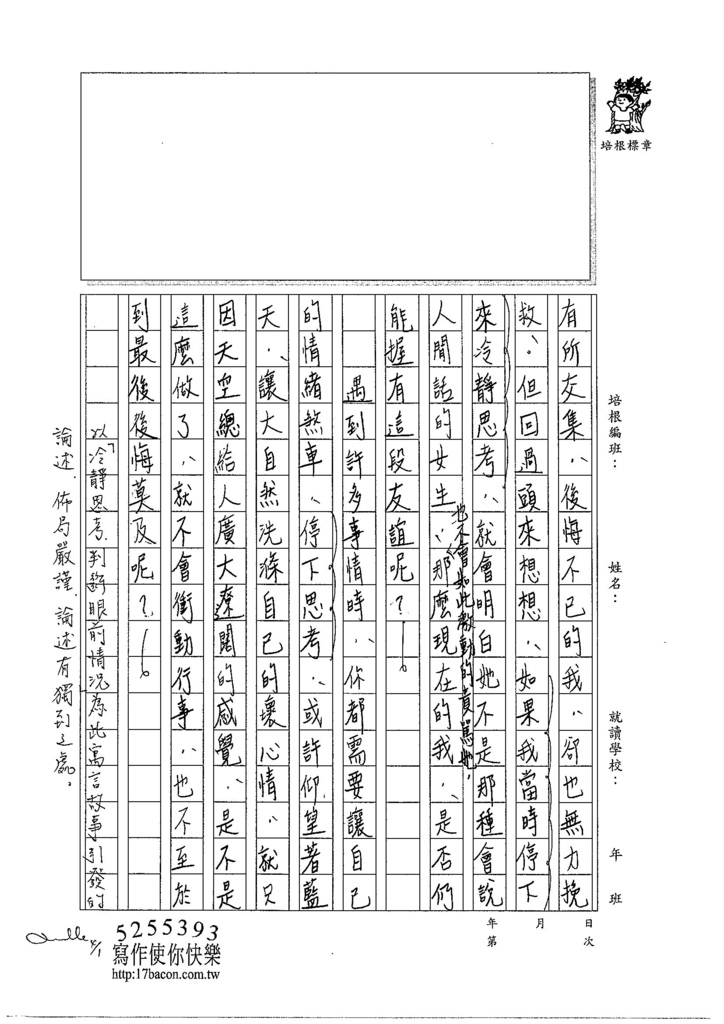 培根標章
培根編班：　姓名：　就讀學校：　年　班
年　月　日
第　次
有所交集，後悔不已的我，卻也無力挽
救。但回過頭來想想，如果我當時停下
來冷靜思考，就會明白她不是那種會說
人閒話的女生，那麼現在的我，是否仍
也不會如此激動的責罵她，
能握有這段友誼呢？
遇到許多事情時，你都需要讓自己
的情緒煞車，停下思考，或許仰望著藍
天，讓大自然洗滌自己的壞心情，就只
因天空總給人廣大遼闊的感覺，是不是
這麼做了，就不會衝動行事，也不至於
到最後後悔莫及呢？
以「冷靜思考，判斷眼前情況為此寓言故事引發的
論述，佈局嚴謹，論述有獨到之處。
4/1
5255393
寫作使你快樂
http:17bacon.com.tw